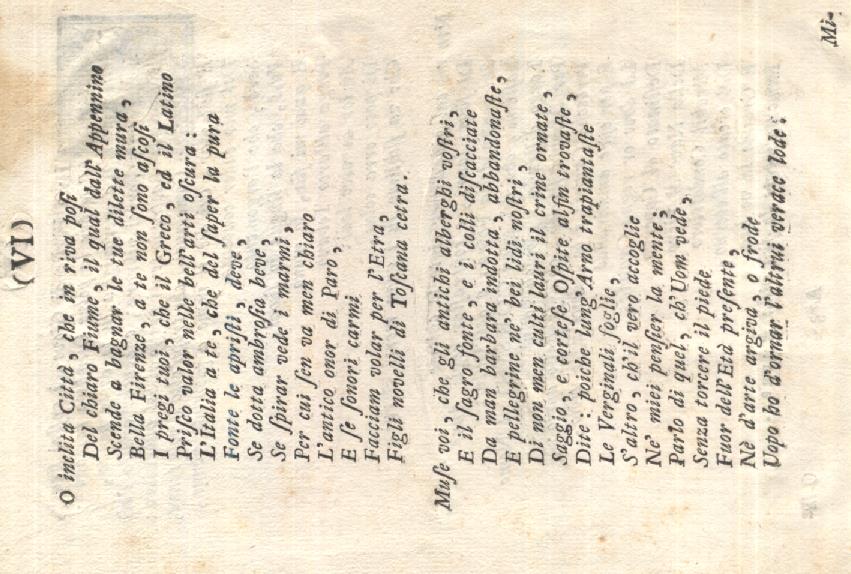 (VI)
O inclita Città, che in riva posi
Del chiaro Fiume, il qual dall' Appennino
Scende a bagnar le tue dilette mura,
Bella Firenze, a te non sono ascosi
I pregi tuoi, che il Greco, ed il Latino
Prisco valor nelle bell'arti oscura:
L'Italia a te, che del saper la pura
Fonte le apristi, deve,
Se dotta ambrosia beve,
Se spirar vede i marmi,
Per cui sen va men chiaro
L'antico onor di Paro,
E se sonori carmi
Facciam volar per l'Etra,
Figli novelli di Toscana cetra.
Muse voi, che gli antichi alberghi vostri,
E il sagro fonte, e i colli discacciate
Da man barbara indotta, abbandonaste,
E pellegrine ne' bei lidi nostri,
Di non men culti lauri il crine ornate,
Saggio, e cortese Ospite alfin trovaste,
Dite: poiche lung'Arno trapiantaste
Le Verginali soglie,
S'altro, ch'il vero accoglie
Ne' miei pensier la mente;
Parlo di quel, ch'Uom vede,
Senza torcere il piede
Fuor dell'Età presente,
Nè d'arte argiva, o frode
Uopo ho d'ornar l'altrui verace lode:
Mi-